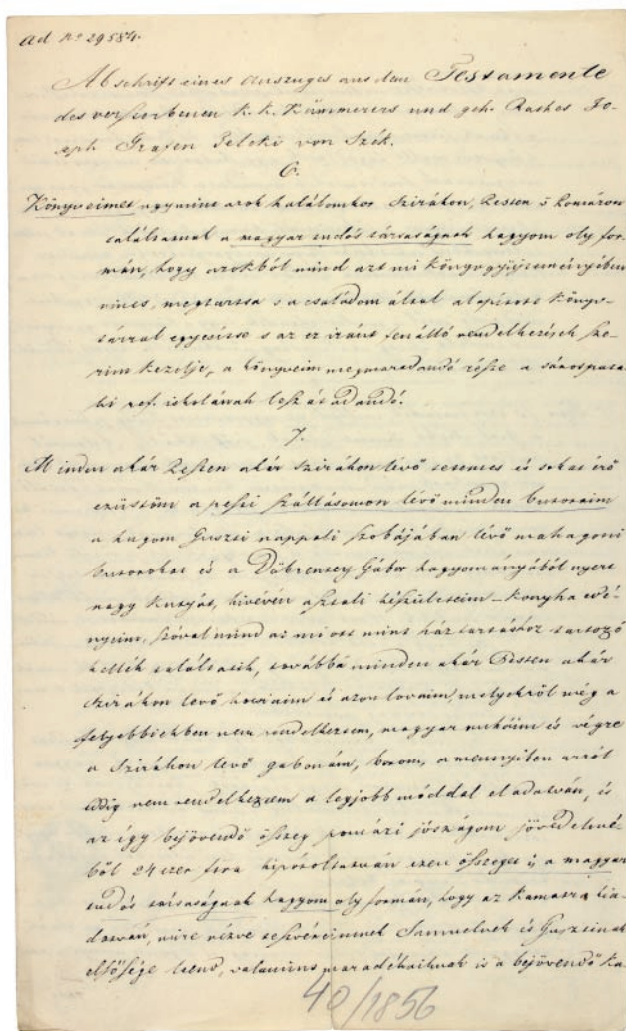 ad No 29584.
Abschrift eines Auszuges aus dem Testamente
des verstorbenen k. k. Kämmerers und geh. Rathes Jo-
seph Grafen Teleki von Szék.
6.
Könyveimet ugymint azok halálomkor Szirákon, Pesten s Komáron
találtatnak a magyar tudós társaságnak hagyom oly for-
mán, hogy azokból mind azt mi könyvgyüjteményében
nincs, megtartsa s a családom által alapított könyv-
tárral egyesítse s az ez iránt fenálló rendelkezések sze-
rint kezelje, a könyveim megmaradandó része a sárospata-
ki ref. iskolának lesz átadandó.
7.
Minden akár Pesten akár Szirákon lévő temes és sokat érő
ezüstöm a pesti szállásomon lévő minden butoraim
a hugom Guszti nappali szobájában lévő mahagoni
butorokat és a Döbrentey Gábor hagyományából nyert
nagy kutyát, kivévén asztali készületeim – konyha edé-
nyeim, szóval mind az mi ott mint háztartáshoz tartozó
kellék találtatik, továbbá minden akár Pesten akár
Szirákon levő kocsiaim és azon lovaim, melyekről még a
feljebbiekben nem rendelkeztem, magyar ruháim és végre
a Szirákon levő gabonám, borom, a mennyiben arról
eddig nem rendelkeztem a legjobb móddal eladatván, és
az így bejövendő összeg pomázi jószágom jövedelmé-
ből 24 ezer ftra kipótoltatván ezen összeget is a magyar
tudós társaságnak hagyom oly formán, hogy az kamatra kia-
datván, mire nézve testvéreimnek Samuelnek és Gusztinak
elsősége leend, valamint maradékaiknak is a bejövendő ka-
40/1856